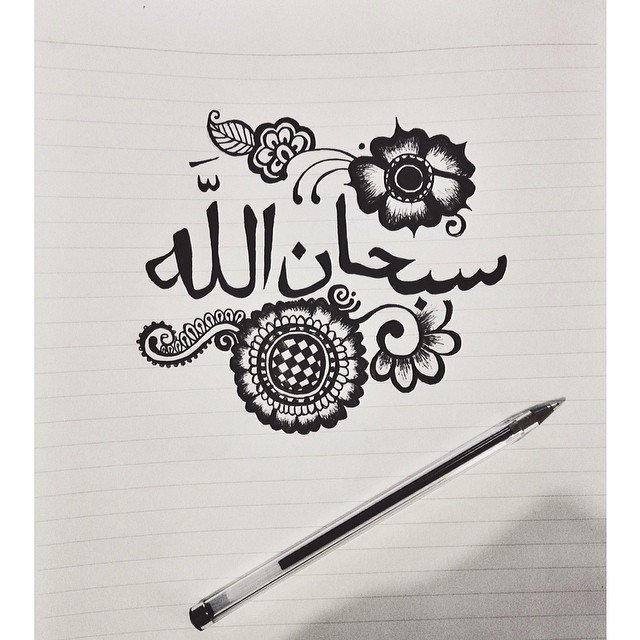 سبحان اللَّه